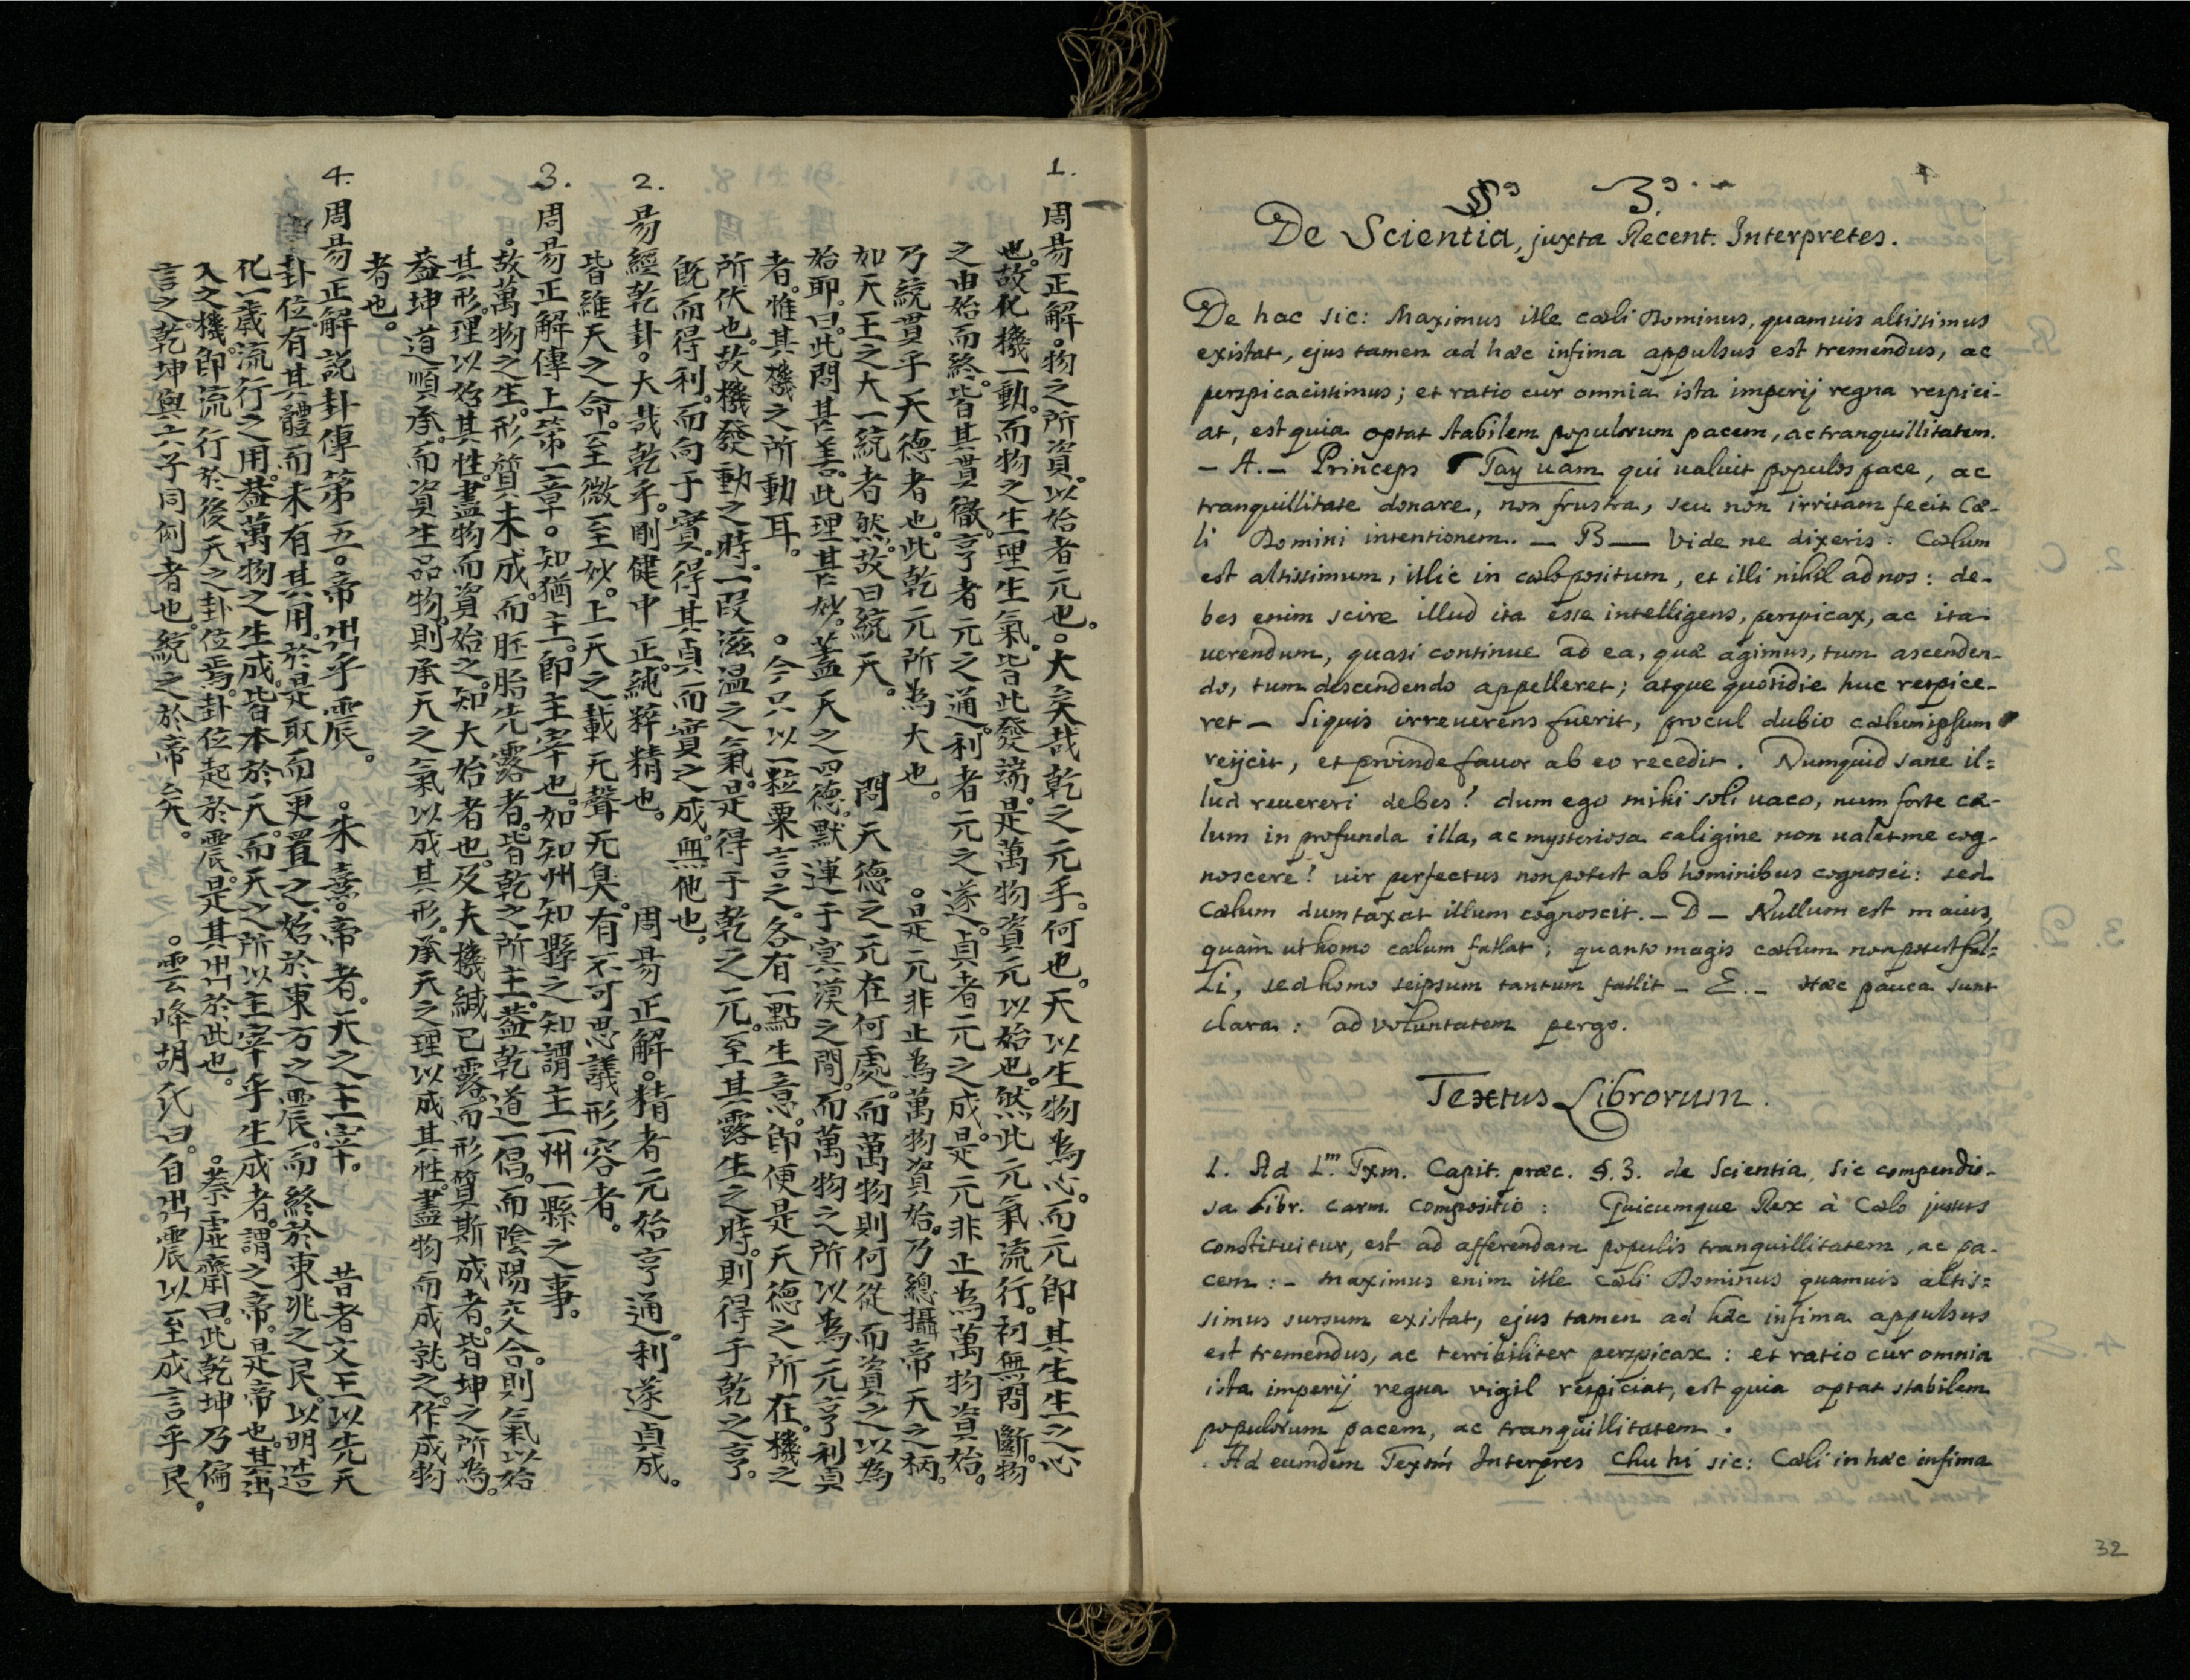 1.
周易正解。物之所資以始者元也。大矣哉乾之元乎。何也。天以生物為心。而元即其生生之心
也。故化機一動。而物之生理生氣。皆此發端。是萬物資元以始也。然此元氣流行。初無間斷。物
之由始而終。皆其貫徹。亨者元之通。利者元之遂。貞者元之成。是元非止為萬物資始。
乃統貫乎天德者也。此乾元所為大也。。是元非止為萬物資始。乃總攝帝天之柄。
如天王之大一統者然。故曰統天。 問天德之元在何處。而萬物則何從而資之以為
始耶。曰。此問甚善。此理甚妙。蓋天之四德。默運于冥漠之間。而萬物之所以為元亨利貞
者。惟其機之所動耳。。今只以一粒粟言之。各有一點生意。即便是天德之所在。機之
所伏也。故機發動之時。一段滋温之氣。是得于乾之元。至其露生之時。則得乎乾之亨。
旣而得利。而向于實。得其貞而實之成。無他也。
2.
易經乾卦。大哉乾乎。剛健中正。純粹精也。 周易正解。精者元始亨通。利遂貞成。
皆維天之命。至微至妙。上天之載。无聲无臭。有不可思議形容者。
3.
周易正解傳上第一章。知猶主。即主宰也。如知州知縣之知。謂主一州一縣之事。
故萬物之生。形質未成。而胚胎先露者。皆乾之所主。蓋乾道一倡。而陰陽交合。則氣以始
其形。理以始其性。盡物而資始之。知大始者也。及夫機緘已露。而形質斯成者。皆坤之所為。
蓋坤道順承。而資生品物。則承天之氣以成其形。承天之理以成其性。盡物而成就之。作成物
者也。
4.
周易正解說卦傳第五。帝出乎震。 。朱熹。帝者。天之主宰。 昔者文王以先天
卦位。有其體而未有其用。於是取而更置之。始於東方之震。而終於東兆之艮。以明造
化一歲流行之用。蓋萬物之生成。皆本於天。而天之所以主宰乎生成者。謂之帝。是帝也。其出
入之機。即流行於後天之卦位焉。卦位起於震。是其出於此也。 。蔡虛齋曰。此乾坤乃偏
言之。乾坤與六子同例者也。統之於帝矣。 。雲峰胡氏曰。自出震以至成言乎艮。
§º 3º.
De Scientia, juxta Recent. Interpretes.
De hac sic: Maximus ille cæli Dominus, quamuis altissimus
existat, ejus tamen ad hæc infima appulsus est tremendus, ac
perspicacissimus; et ratio cur omnia ista imperij regna respici-
at, est quia optat stabilem populorum pacem, ac tranquillitatem.
– A. – Princeps Tay uam qui ualuit populos pace, ac
tranquillitate donare, non frustra, seu non irritam fecit Cæ-
li Domini intentionem. – B – Vide ne dixeris: Cælum
est altissimum, illic in cælo positum, et illi nihil ad nos: de-
bes enim scire illud ita esse intelligens, perspicax, ac ita
uerendum, quasi continue ad ea, quæ agimus, tum ascenden-
do, tum descendendo appelleret; atque quotidie huc respice-
ret – Siquis irreuerens fuerit, procul dubio cælum ipsum
reijcit, et proinde fauor ab eo recedit. Numquid sane il=
lud reuereri debes? dum ego mihi soli uaco, num forte cæ-
lum in profunda illa, ac mysteriosa caligine non ualet me cog-
noscere? uir perfectus non potest ab hominibus cognosci: sed
Cælum dumtaxat illum cognoscit. – D – Nullum est maius,
quàm ut homo cælum fallat; quanto magis cælum non potest fal=
li, sed homo seipsum tantum fallit – E. – Hæc pauca sunt
clara: ad voluntatem pergo.
Textus Librorum.
1. Ad 1.ᵐ Txm. Capit. præc. §. 3. de Scientia, sic compendio-
sa Libr. carm. compositio: Quicumque Rex à Cælo jussus
constituitur, est ad afferendam populis tranquillitatem, ac pa-
cem: – Maximus enim ille cæli Dominus quamuis altis=
simus sursum existat, ejus tamen ad hæc infima appulsus
est tremendus, ac terribiliter perspicax: et ratio cur omnia
ista imperij regna vigil respiciat, est quia optat stabilem
populorum pacem, ac tranquillitatem.
Ad eumdem Textū Interpres Chu hi sic: Cæli in hæc infima
32